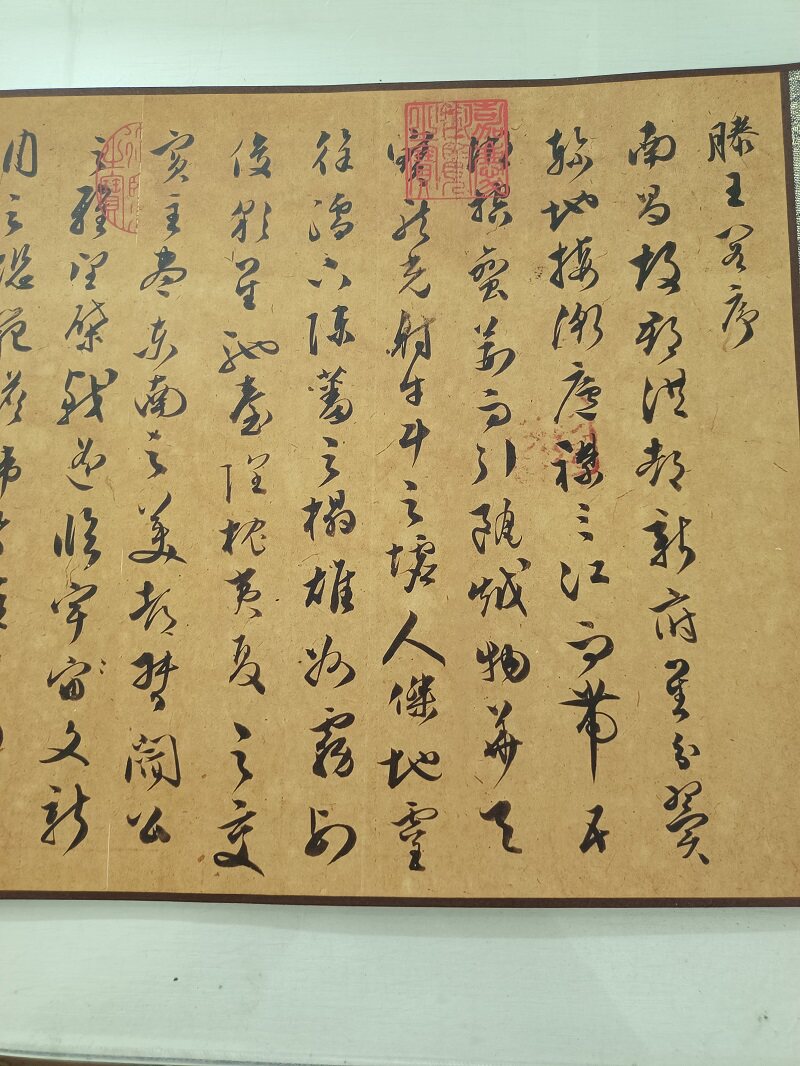 滕王閣序
南昌故郡洪都新府星分翼
軫地接衡廬襟三江而帶五
湖控蠻荊而引甌越物華天
寶龍光射牛斗之墟人傑地靈
徐孺下陳蕃之榻雄州霧列
俊彩星馳臺隍枕夷夏之交
賓主盡東南之美都督閻公
之雅望棨戟遙臨宇宙文新
州之懿範襜帷
嘉慶御覽之寶